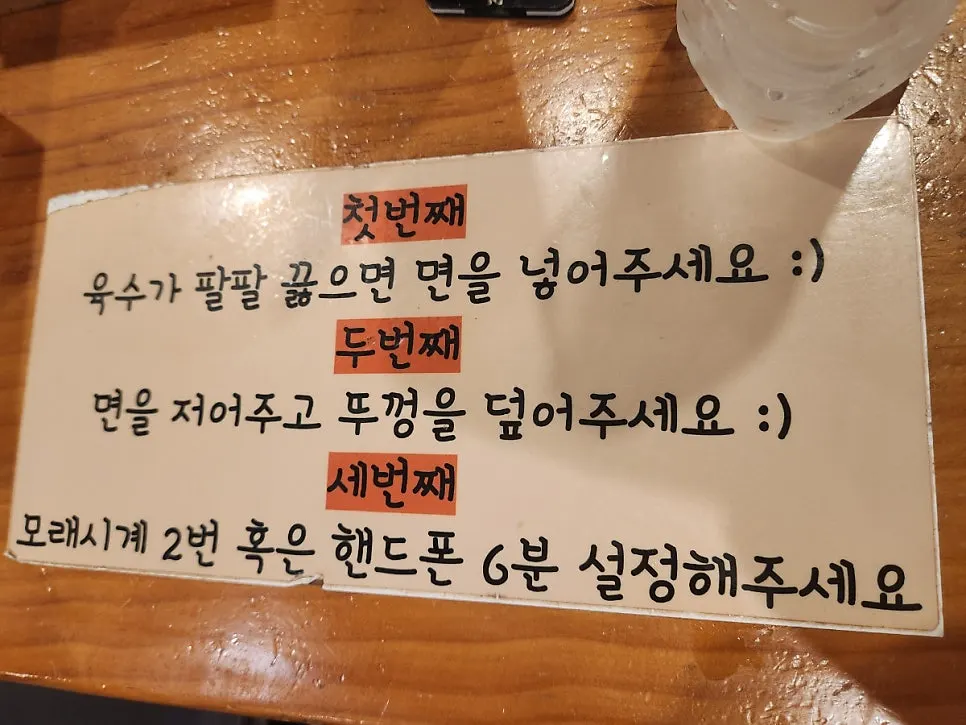 첫번째
육수가 팔팔 끓으면 면을 넣어주세요 :)
두번째
면을 저어주고 뚜껑을 덮어주세요 :)
세번째
모래시계 2번 혹은 핸드폰 6분 설정해주세요